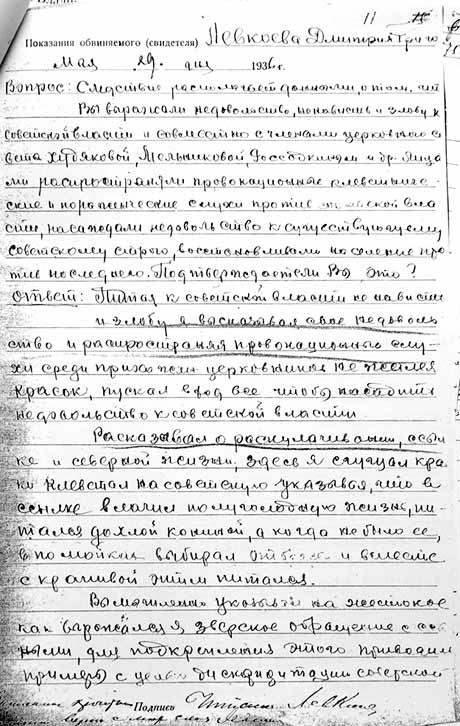 11
Показания обвиняемого (свидетеля) Левкоева Дмитрия Григо
Мая 29 дня 1936 г.
Вопрос: Следствие располагает данными, о том, что
Вы выражали недовольство, ненависть и злобу к
советской власти и совместно с членами церковного со
вета Хлебяковой, Мельниковой, и др. лица
ми распространяли провокационные клеветниче-
ские и пораженческие слухи против советской вла
сти, насаждали недовольство к существующему
советскому строю, восстановливали население про
тив последнего. Подтверждаете ли Вы это?
Ответ: Питая к советской власти ненависть
и злобу я высказывал свое недоволь
ство и распространяя провокационные слу-
хи среди прихожан церковников не жалея
красок, пускал в ход все чтобы
недовольство к советской власти
Рассказывал о раскулачивании, ссыл
ке и северной жизни. Здесь я сгущал кра
ки клеветал на советскую указывая, что в
ссылке влачил полуголодную жизнь, пи-
тался дохлой кониной, а когда не было ее,
в помойках выбирал и вместе
с крапивой этим питался.
Вымышленно указывал на жестокое
как выражался я зверское обращение с ссы
ными, для подкрепления этого приводил
примеры с целью дискридитации советской
Подпись Левкоев